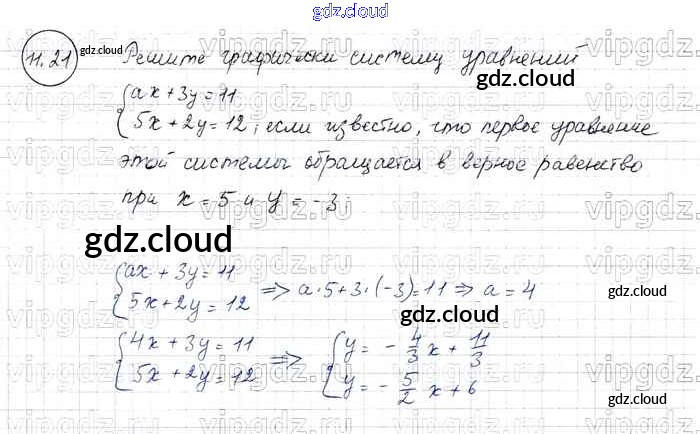 gdz.cloud
11.21 gdz.cloud Решите графически систему уравнений
gdz.cloud
{ax + 3y = 11
{5x + 2y = 12, если известно, что первое уравнение
этой системы обращается в верное равенство
при x = 5 и y = -3
gdz.cloud
{ax + 3y = 11
{5x + 2y = 12 => a·5+3·(-3)=11 => a = 4
gdz.cloud
gdz.cloud
{4x + 3y = 11
{5x + 2y = 12 => {y = - 4/3 x + 11/3
{y = - 5/2 x + 6
gdz.cloud